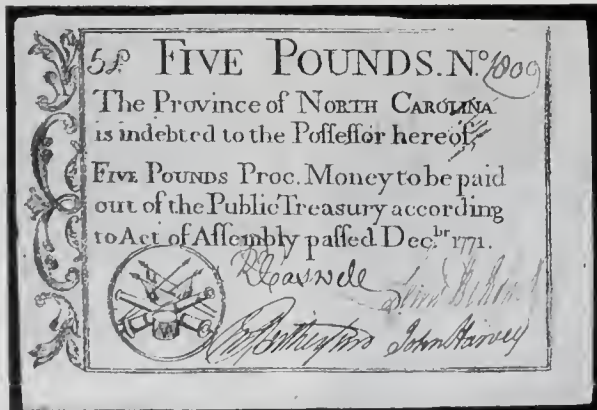 5£. FIVE POUNDS. No. 1800
The Province of NORTH CAROLINA
is indebted to the Poſſeſſor hereof,
FIVE POUNDS Proc. Money to be paid
out of the Public Treasury according
to Act of Aſſembly paſſed Decbr. 1771.
R Caswell
John Harvey